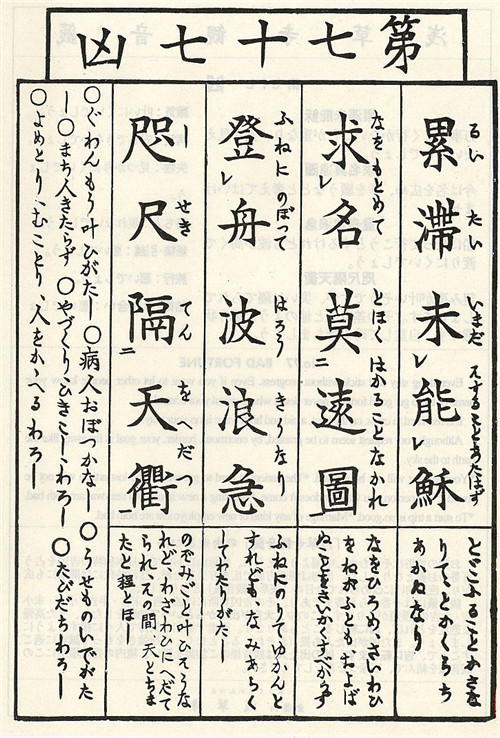 第七十七凶
累滞未レ能レ穌
るい たい いまだ
とどこふることかさな
りてとかくらち
あかぬなり
求名莫二遠圖一
なをもとめて とほくはかることなかれ
なをひろめ、さいわひ
をねがふともおよば
ぬことをさいかくすべからず
登レ舟波浪急
ふねにのぼって はろうきうなり
ふねにのりてゆかんと
すれども、なみあらく
してわたりがたし
咫尺隔二天衢一
しせきてんくをへだつ
のぞみごと叶へそうな
れど、わざわひにへだて
られ、その間天とちま
たと程とほし
〇ぐわんもう叶ひがたし 〇病人おぼつかな
し 〇まち人きたらず 〇やづくりひきこしわろし
〇よめとりむことり人をかゝへるわろし
〇うせものいでがた
し 〇たびだちわろし